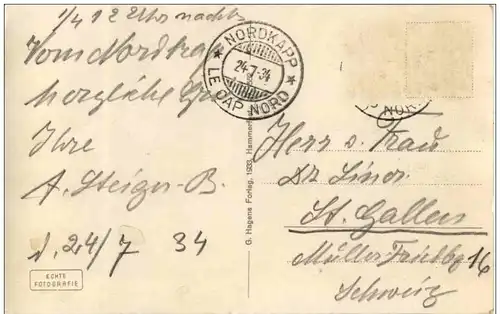 1/4 12 Uhr nachts
Vom Nordkap
herzliche
Ihre
A. Steiger-B.
d. 24/7 34
ECHTE
FOTOGRAFIE
NORDKAPP
24-7-34
LE CAP NORD
G. Hagens Forlag, 1933, Hammerfest
NOR
Herr u. Frau
Dr
St. Gallen
Müller Friedbg 16
Schweiz